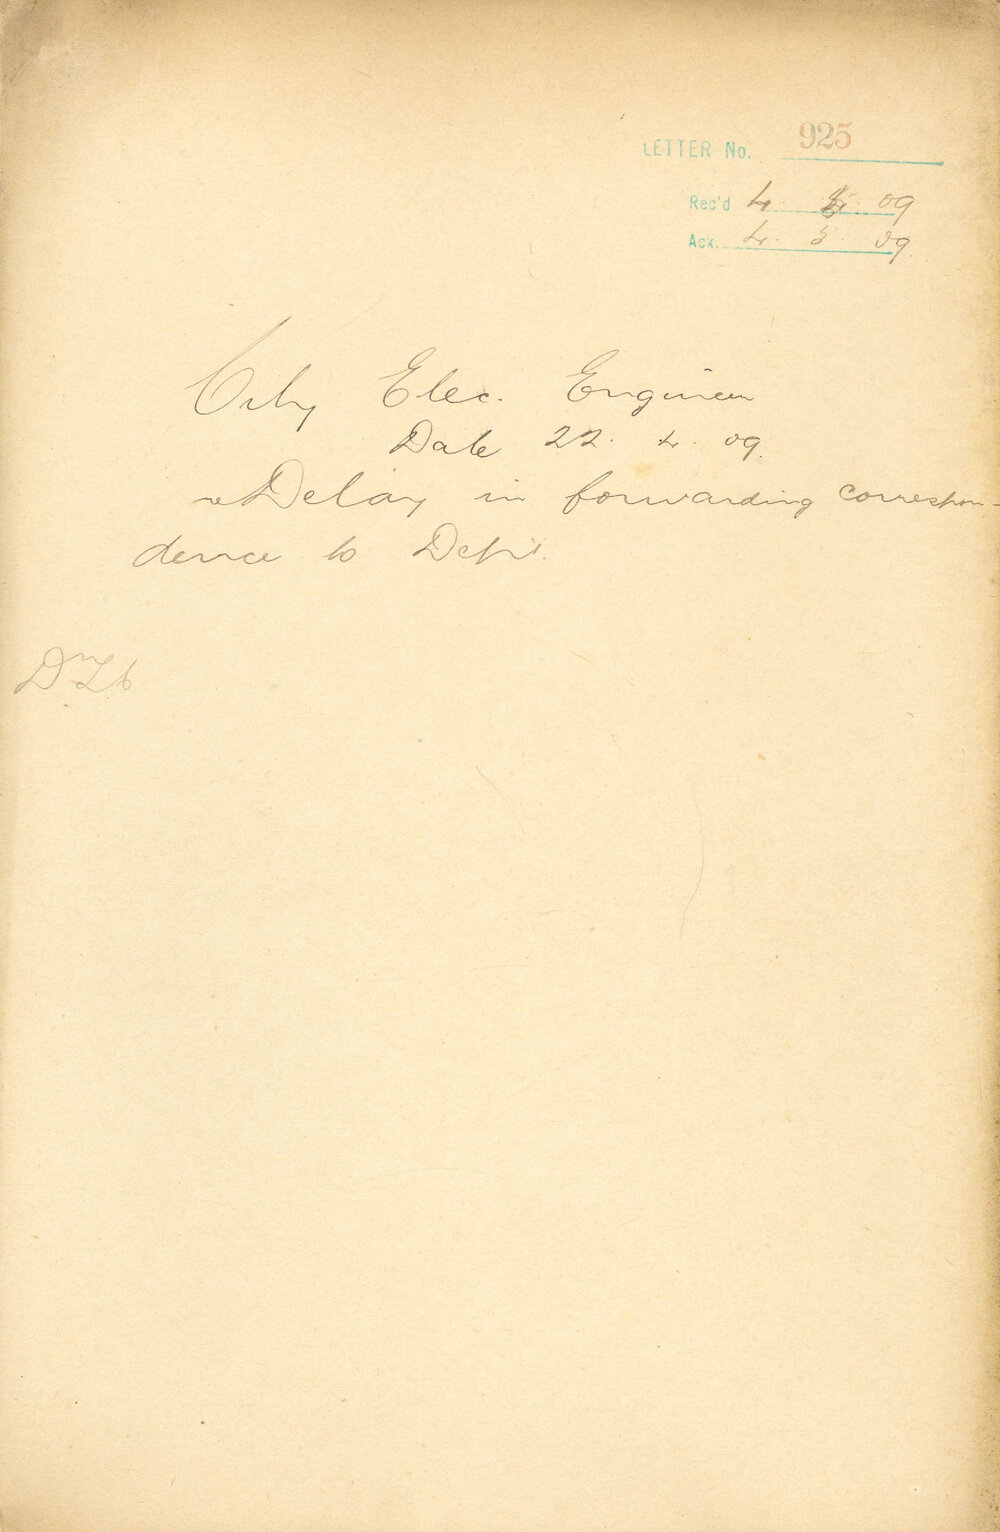 LETTER No. 925
Rec'd 4. 5. 09
Ack. 4. 5. 09.
City Elec. Engineer
Date 22. 4. 09.
re Delay in forwarding correspon-
dence to Dept.